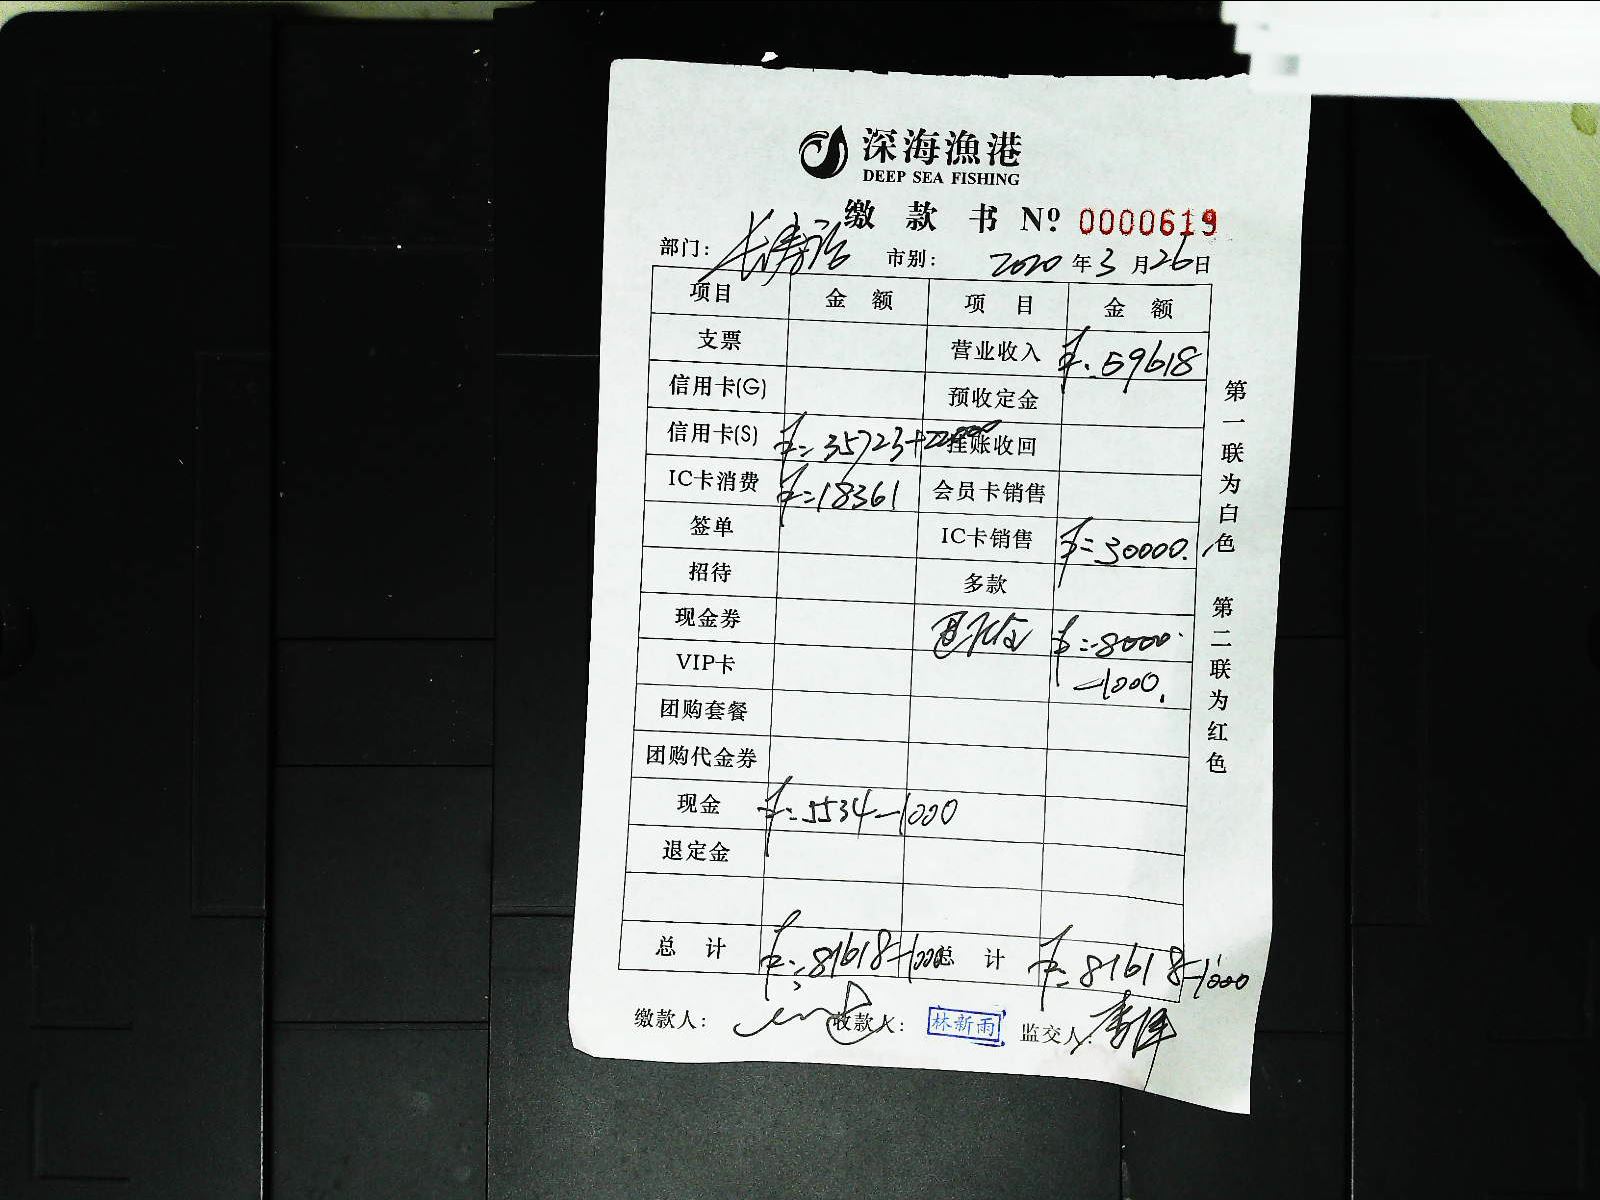 深海漁港
DEEP SEA FISHING
缴款书 Nº 0000619
部门: 长寿路 市别: 2020年3月26日
项目 金额 项目 金额
支票 营业收入 ¥:59618
信用卡(G) 预收定金
信用卡(S) ¥=35723+22000 挂账收回
IC卡消费 ¥=18361 会员卡销售
签单 IC卡销售 ¥=30000.
招待 多款
现金券 ¥=-8000
VIP卡 -1000.
团购套餐
团购代金券
现金 ¥=5534-1000
退定金
总计 ¥=81618-1000 总计 ¥=81618-1000
缴款人: 收款人: 林新雨 监交人:
第一联为白色 第二联为红色